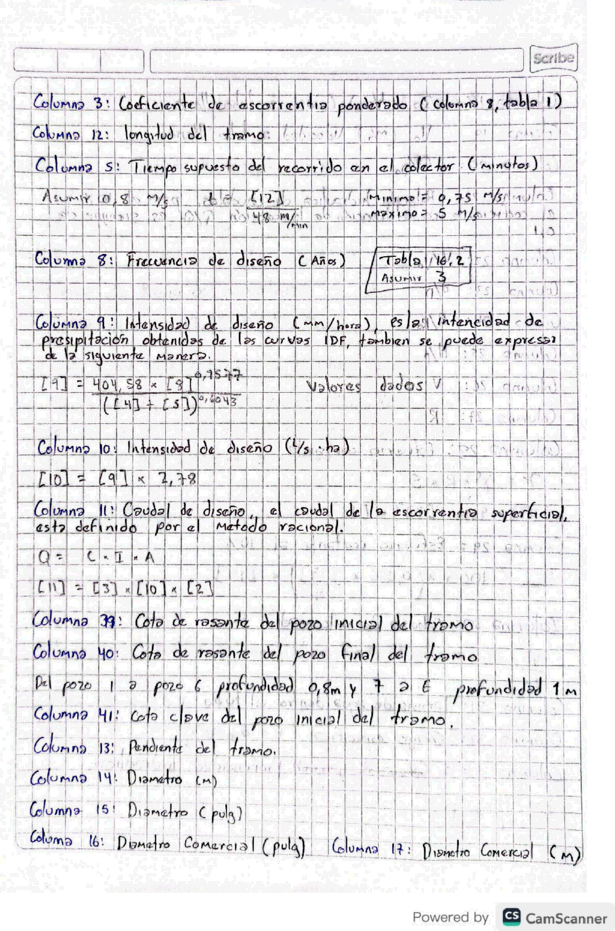 Scribe
Columna 3: Coeficiente de escorrentia ponderado (columna 8, tabla 1)
Columna 12: longitud del tramo
Columna 5: Tiempo supuesto del recorrido en el colector (minutos)
Asumir 0,8 m/s t = [12] / 48 m/min Minimo = 0,75 m/s
maximo = 5 m/s
Columna 8: Frecuencia de diseño (Años) Tabla 16.2
Asumir 3
Columna 9: Intensidad de diseño (mm/hora), es la intencidad de
presipitación obtenidas de las curvas IDF, tambien se puede expresar
de la siguiente manera.
[9] = 404,58 × [8]^0,9577 / ([4] + [5])^0,6043 Valores dados
Columna 10: Intensidad de diseño (L/s · ha)
[10] = [9] × 2,78
Columna 11: Caudal de diseño, el caudal de la escorrentia superficial,
esta definido por el Metodo racional.
Q = C × I × A
[11] = [3] × [10] × [2]
Columna 39: Cota de rasante del pozo inicial del tramo
Columna 40: Cota de rasante del pozo final del tramo
Del pozo 1 a pozo 6 profundidad 0,8m y 7 a E profundidad 1m
Columna 41: cota clave del pozo inicial del tramo.
Columna 13: Pendiente del tramo.
Columna 14: Diametro (m)
Columna 15: Diametro (pulg)
Coluna 16: Diametro Comercial (pulg) Columna 17: Diametro Comercial (m)
Powered by CS CamScanner